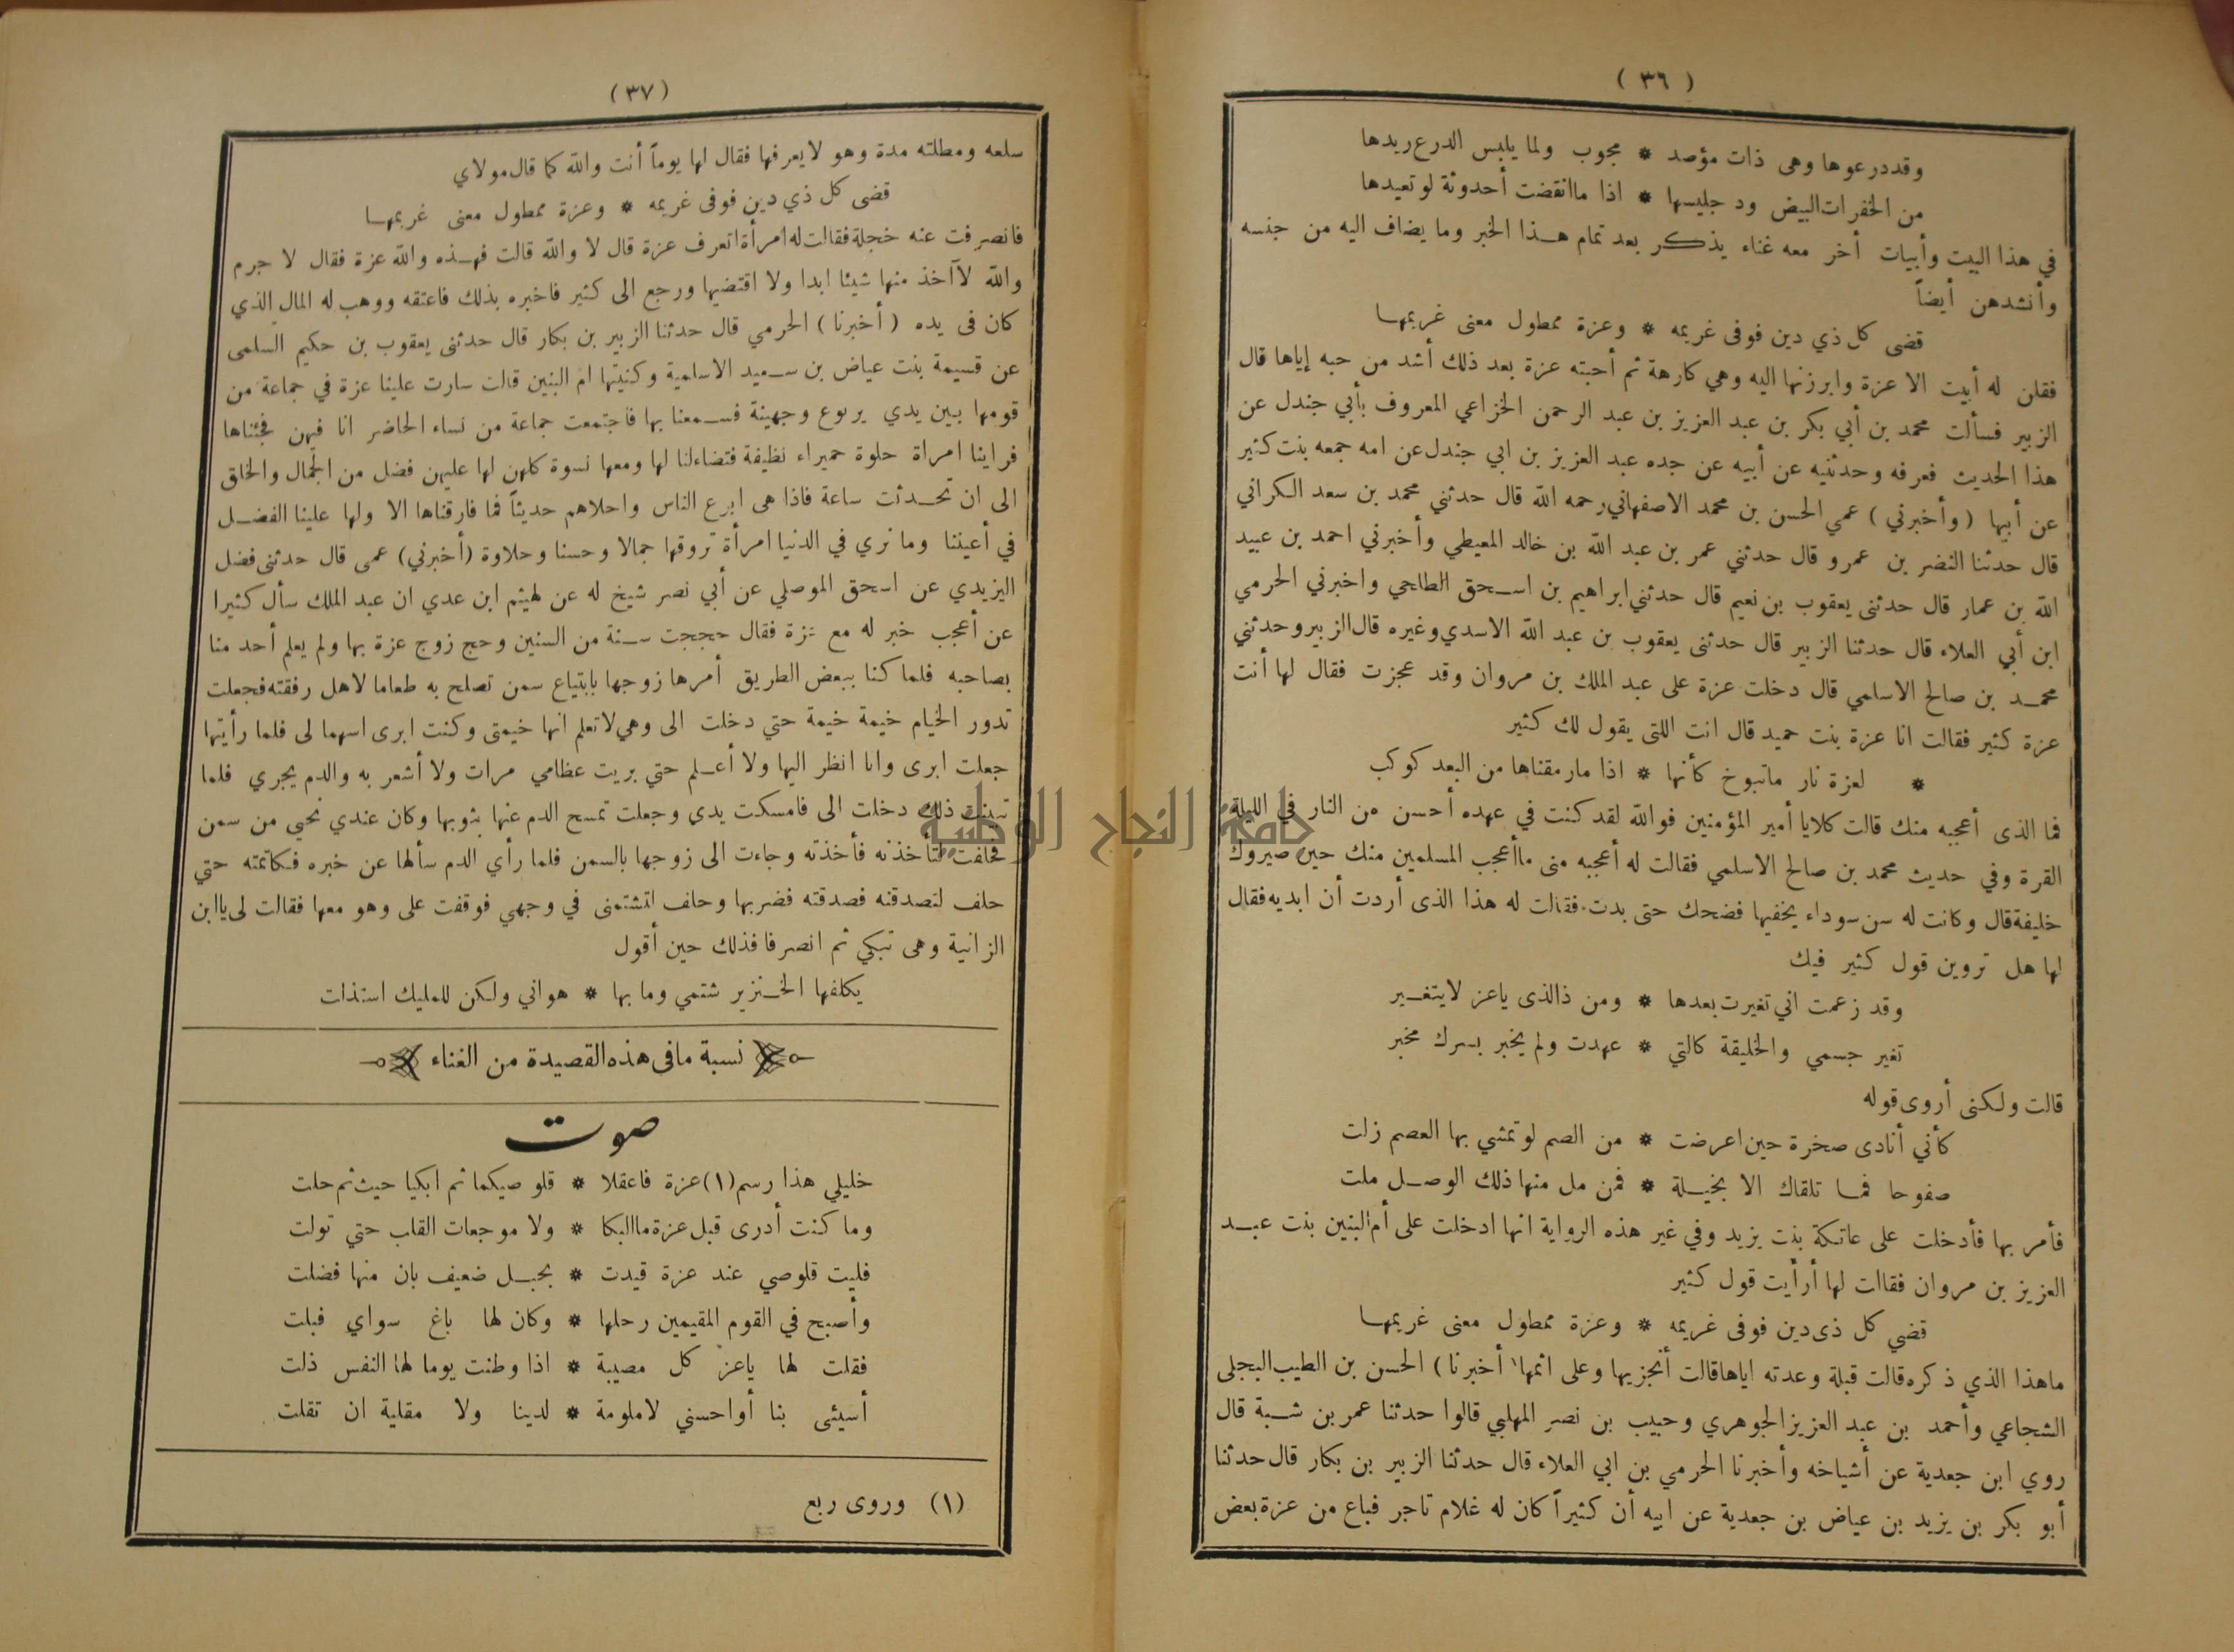 ( ٣٦ )
وقددرعوها وهى ذات مؤصد * مجوب ولما يلبس الدرع ريدها
من الخفرات البيض ود جليسها * اذا ماانقضت أحدوثة لو تعيدها
في هذا البيت وأبيات أخر معه غناء يذكر بعد تمام هذا الخبر وما يضاف اليه من جنسه
وأنشدهن أيضاً
قضى كل ذي دين فوفى غريمه * وعزة ممطول معنى غريمها
فقلن له أبيت الا عزة وابرزنها اليه وهي كارهة ثم أحبته عزة بعد ذلك أشد من حبه إياها قال
الزبير فسألت محمد بن أبي بكر بن عبد العزيز بن عبد الرحمن الخزاعي المعروف بأبي جندل عن
هذا الحديث فعرفه وحدثنيه عن أبيه عن جده عبد العزيز بن ابي جندل عن امه جمعه بنت كثير
عن أبيها (وأخبرني) عمي الحسن بن محمد الاصفهاني رحمه الله قال حدثني محمد بن سعد الكراني
قال حدثنا النضر بن عمرو قال حدثني عمر بن عبد الله بن خالد المعيطي وأخبرني احمد بن عبيد
الله بن عمار قال حدثنى يعقوب بن نعيم قال حدثني ابراهيم بن اسحق الطلحي واخبرني الحرمي
ابن أبي العلاء قال حدثنا الزبير قال حدثنى يعقوب بن عبد الله الاسدي وغيره قال الزبير وحدثني
محمد بن صالح الاسلمي قال دخلت عزة على عبد الملك بن مروان وقد عجزت فقال لها أنت
عزة كثير فقالت انا عزة بنت حميد قال انت اللتى يقول لك كثير
* لعزة نار ماتبوخ كأنها * اذا مارمقناها من البعد كوكب
فما الذى أعجبه منك قالت كلا يا أمير المؤمنين فوالله لقد كنت في عهده أحسن من النار في الليلة
القرة وفي حديث محمد بن صالح الاسلمي فقالت له أعجبه منى ماأعجب المسلمين منك حين صيروك
خليفة قال وكانت له سن سوداء يخفيها فضحك حتى بدت فقالت له هذا الذى أردت أن ابديه فقال
لها هل تروين قول كثير فيك
وقد زعمت اني تغيرت بعدها * ومن ذا الذى ياعز لايتغير
تغير جسمي والخليقة كالتي * عهدت ولم يخبر بسرك مخبر
قالت ولكنى أروى قوله
كأني أنادى صخرة حين اعرضت * من الصم لو تمشي بها العصم زلت
صفوحا فما تلقاك الا بخيلة * فمن مل منها ذلك الوصل ملت
فأمر بها فأدخلت على عاتكة بنت يزيد وفي غير هذه الرواية انها ادخلت على أم البنين بنت عبد
العزيز بن مروان فقالت لها أرأيت قول كثير
قضي كل ذى دين فوفى غريمه * وعزة ممطول معنى غريمها
ماهذا الذي ذكره قالت قبلة وعدته اياها قالت أنجزيها وعلى اثمها (أخبرنا) الحسن بن الطيب البجلى
الشجاعي وأحمد بن عبد العزيز الجوهري وحبيب بن نصر المهلبي قالوا حدثنا عمر بن شبة قال
روي ابن جعدية عن أشياخه وأخبرنا الحرمي بن ابي العلاء قال حدثنا الزبير بن بكار قال حدثنا
أبو بكر بن يزيد بن عياض بن جعدية عن ابيه أن كثيراً كان له غلام تاجر فباع من عزة بعض
(٣٧)
سلعه ومطلته مدة وهو لايعرفها فقال لها يوماً أنت والله كما قال مولاي
قضى كل ذي دين فوفى غريمه * وعزة ممطول معنى غريمها
فانصرفت عنه خجلة فقالت له امرأة اتعرف عزة قال لا والله قالت فهذه والله عزة فقال لا جرم
والله لاآخذ منها شيئا ابدا ولا اقتضيها ورجع الى كثير فاخبره بذلك فاعتقه ووهب له المال الذي
كان فى يده (أخبرنا) الحرمي قال حدثنا الزبير بن بكار قال حدثنى يعقوب بن حكيم السلمى
عن قسيمة بنت عياض بن سعيد الاسلمية وكنيتها ام البنين قالت سارت علينا عزة في جماعة من
قومها بين يدي يربوع وجهينة فسمعنا بها فاجتمعت جماعة من نساء الحاضر انا فيهن فجئناها
فراينا امراة حلوة حميراء نظيفة فتضاءلنا لها ومعها نسوة كلهن لها عليهن فضل من الجمال والخلق
الى ان تحدثت ساعة فاذا هى ابرع الناس واحلاهم حديثاً فما فارقناها الا ولها علينا الفضل
في أعيننا وما نري في الدنيا امرأة تروقها جمالا وحسنا وحلاوة (أخبرني) عمى قال حدثنى فضل
اليزيدي عن اسحق الموصلي عن أبي نصر شيخ له عن لهيثم ابن عدي ان عبد الملك سأل كثيرا
عن أعجب خبر له مع عزة فقال حججت سنة من السنين وحج زوج عزة بها ولم يعلم أحد منا
بصاحبه فلما كنا ببعض الطريق أمرها زوجها بابتياع سمن تصلح به طعاما لاهل رفقته فجعلت
تدور الخيام خيمة خيمة حتي دخلت الى وهي لاتعلم انها خيمتى وكنت ابرى اسهما لى فلما رأيتها
جعلت ابرى وانا انظر اليها ولا أعلم حتي بريت عظامي مرات ولا أشعر به والدم يجري فلما
تبينت ذلك دخلت الى فامسكت يدي وجعلت تمسح الدم عنها بثوبها وكان عندي نحي من سمن
فحلفت لتاخذنه فأخذته وجاءت الى زوجها بالسمن فلما رأي الدم سألها عن خبره فكاتمته حتي
حلف لتصدقنه فصدقته فضربها وحلف لتشتمنى في وجهي فوقفت على وهو معها فقالت لى ياابن
الزانية وهى تبكي ثم انصرفا فذلك حين أقول
يكلفها الخنزير شتمي وما بها * هواني ولكن للمليك استذلت
نسبة مافى هذه القصيدة من الغناء
صوت
خليلي هذا رسم(١) عزة فاعقلا * قلوصيكما ثم ابكيا حيث ثم حلت
وما كنت أدرى قبل عزة ماالبكا * ولا موجعات القلب حتي تولت
فليت قلوصي عند عزة قيدت * بحبل ضعيف بان منها فضلت
وأصبح في القوم المقيمين رحلها * وكان لها باغ سواي فبلت
فقلت لها ياعز كل مصيبة * اذا وطنت يوما لها النفس ذلت
أسيئى بنا أو احسني لاملومة * لدينا ولا مقلية ان تقلت
(١) وروى ربع
جامعة النجاح الوطنية